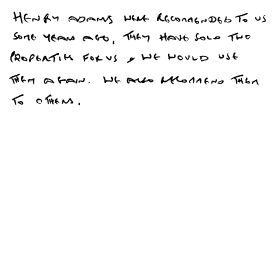 HENRY ADAMS WERE RECOMMENDED TO US
SOME YEARS AGO, THEY HAVE SOLD TWO
PROPERTIES FOR US & WE WOULD USE
THEM AGAIN. WE ALSO RECOMMEND THEM
TO OTHERS.